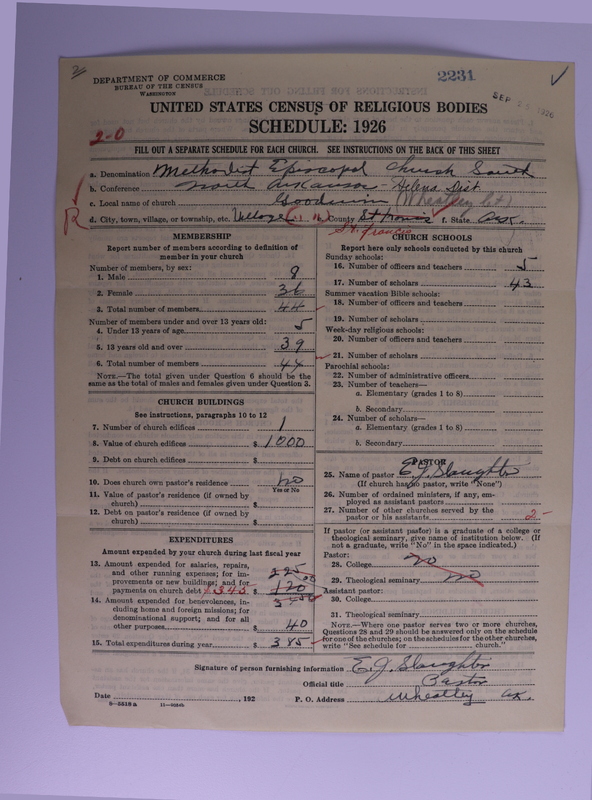 2231
SEP 25 1926
DEPARTMENT OF COMMERCE
BUREAU OF THE CENSUS
WASHINGTON
UNITED STATES CENSUS OF RELIGIOUS BODIES
SCHEDULE: 1926
2-0
FILL OUT A SEPARATE SCHEDULE FOR EACH CHURCH. SEE INSTRUCTIONS ON THE BACK OF THIS SHEET
a. Denomination Methodist Episcopal Church South
b. Conference North Arkansas - Helena Dist
c. Local name of church Goodwin (Wheatley Ct)
R d. City, town, village, or township, etc. Village County St Francis f. State Ark.
St. Francis
MEMBERSHIP
Report number of members according to definition of
member in your church
Number of members, by sex:
1. Male 8
2. Female 36
3. Total number of members 44
Number of members under and over 13 years old:
4. Under 13 years of age 5
5. 13 years old and over 39
6. Total number of members 44
NOTE.—The total given under Question 6 should be the
same as the total of males and females given under Question 3.
CHURCH BUILDINGS
See instructions, paragraphs 10 to 12
7. Number of church edifices 1
8. Value of church edifices $ 1000
9. Debt on church edifices $
10. Does church own pastor's residence No
Yes or No
11. Value of pastor's residence (if owned by
church) $
12. Debt on pastor's residence (if owned by
church) $
EXPENDITURES
Amount expended by your church during last fiscal year
13. Amount expended for salaries, repairs, 225
and other running expenses; for im-
provements or new buildings; and for
payments on church debt 345 $ 120
14. Amount expended for benevolences, in-
cluding home and foreign missions; for
denominational support; and for all
other purposes $ 40
15. Total expenditures during year $ 385
CHURCH SCHOOLS
Report here only schools conducted by this church
Sunday schools:
16. Number of officers and teachers 5
17. Number of scholars 43
Summer vacation Bible schools:
18. Number of officers and teachers
19. Number of scholars
Week-day religious schools:
20. Number of officers and teachers
21. Number of scholars
Parochial schools:
22. Number of administrative officers
23. Number of teachers—
a. Elementary (grades 1 to 8)
b. Secondary
24. Number of scholars—
a. Elementary (grades 1 to 8)
b. Secondary
PASTOR
25. Name of pastor E. J. Slaughter
(If church has no pastor, write "None")
26. Number of ordained ministers, if any, em-
ployed as assistant pastors
27. Number of other churches served by the
pastor or his assistants 2-
If pastor (or assistant pastor) is a graduate of a college or
theological seminary, give name of institution below. (If
not a graduate, write "No" in the space indicated.)
Pastor:
28. College No
29. Theological seminary No
Assistant pastor:
30. College
31. Theological seminary
NOTE.—Where one pastor serves two or more churches,
Questions 28 and 29 should be answered only on the schedule
for one of the churches; on the schedules for the other churches,
write "See schedule for church."
Signature of person furnishing information E. J. Slaughter
Official title Pastor
Date , 192 P. O. Address Wheatley Ark.
8-5518 a